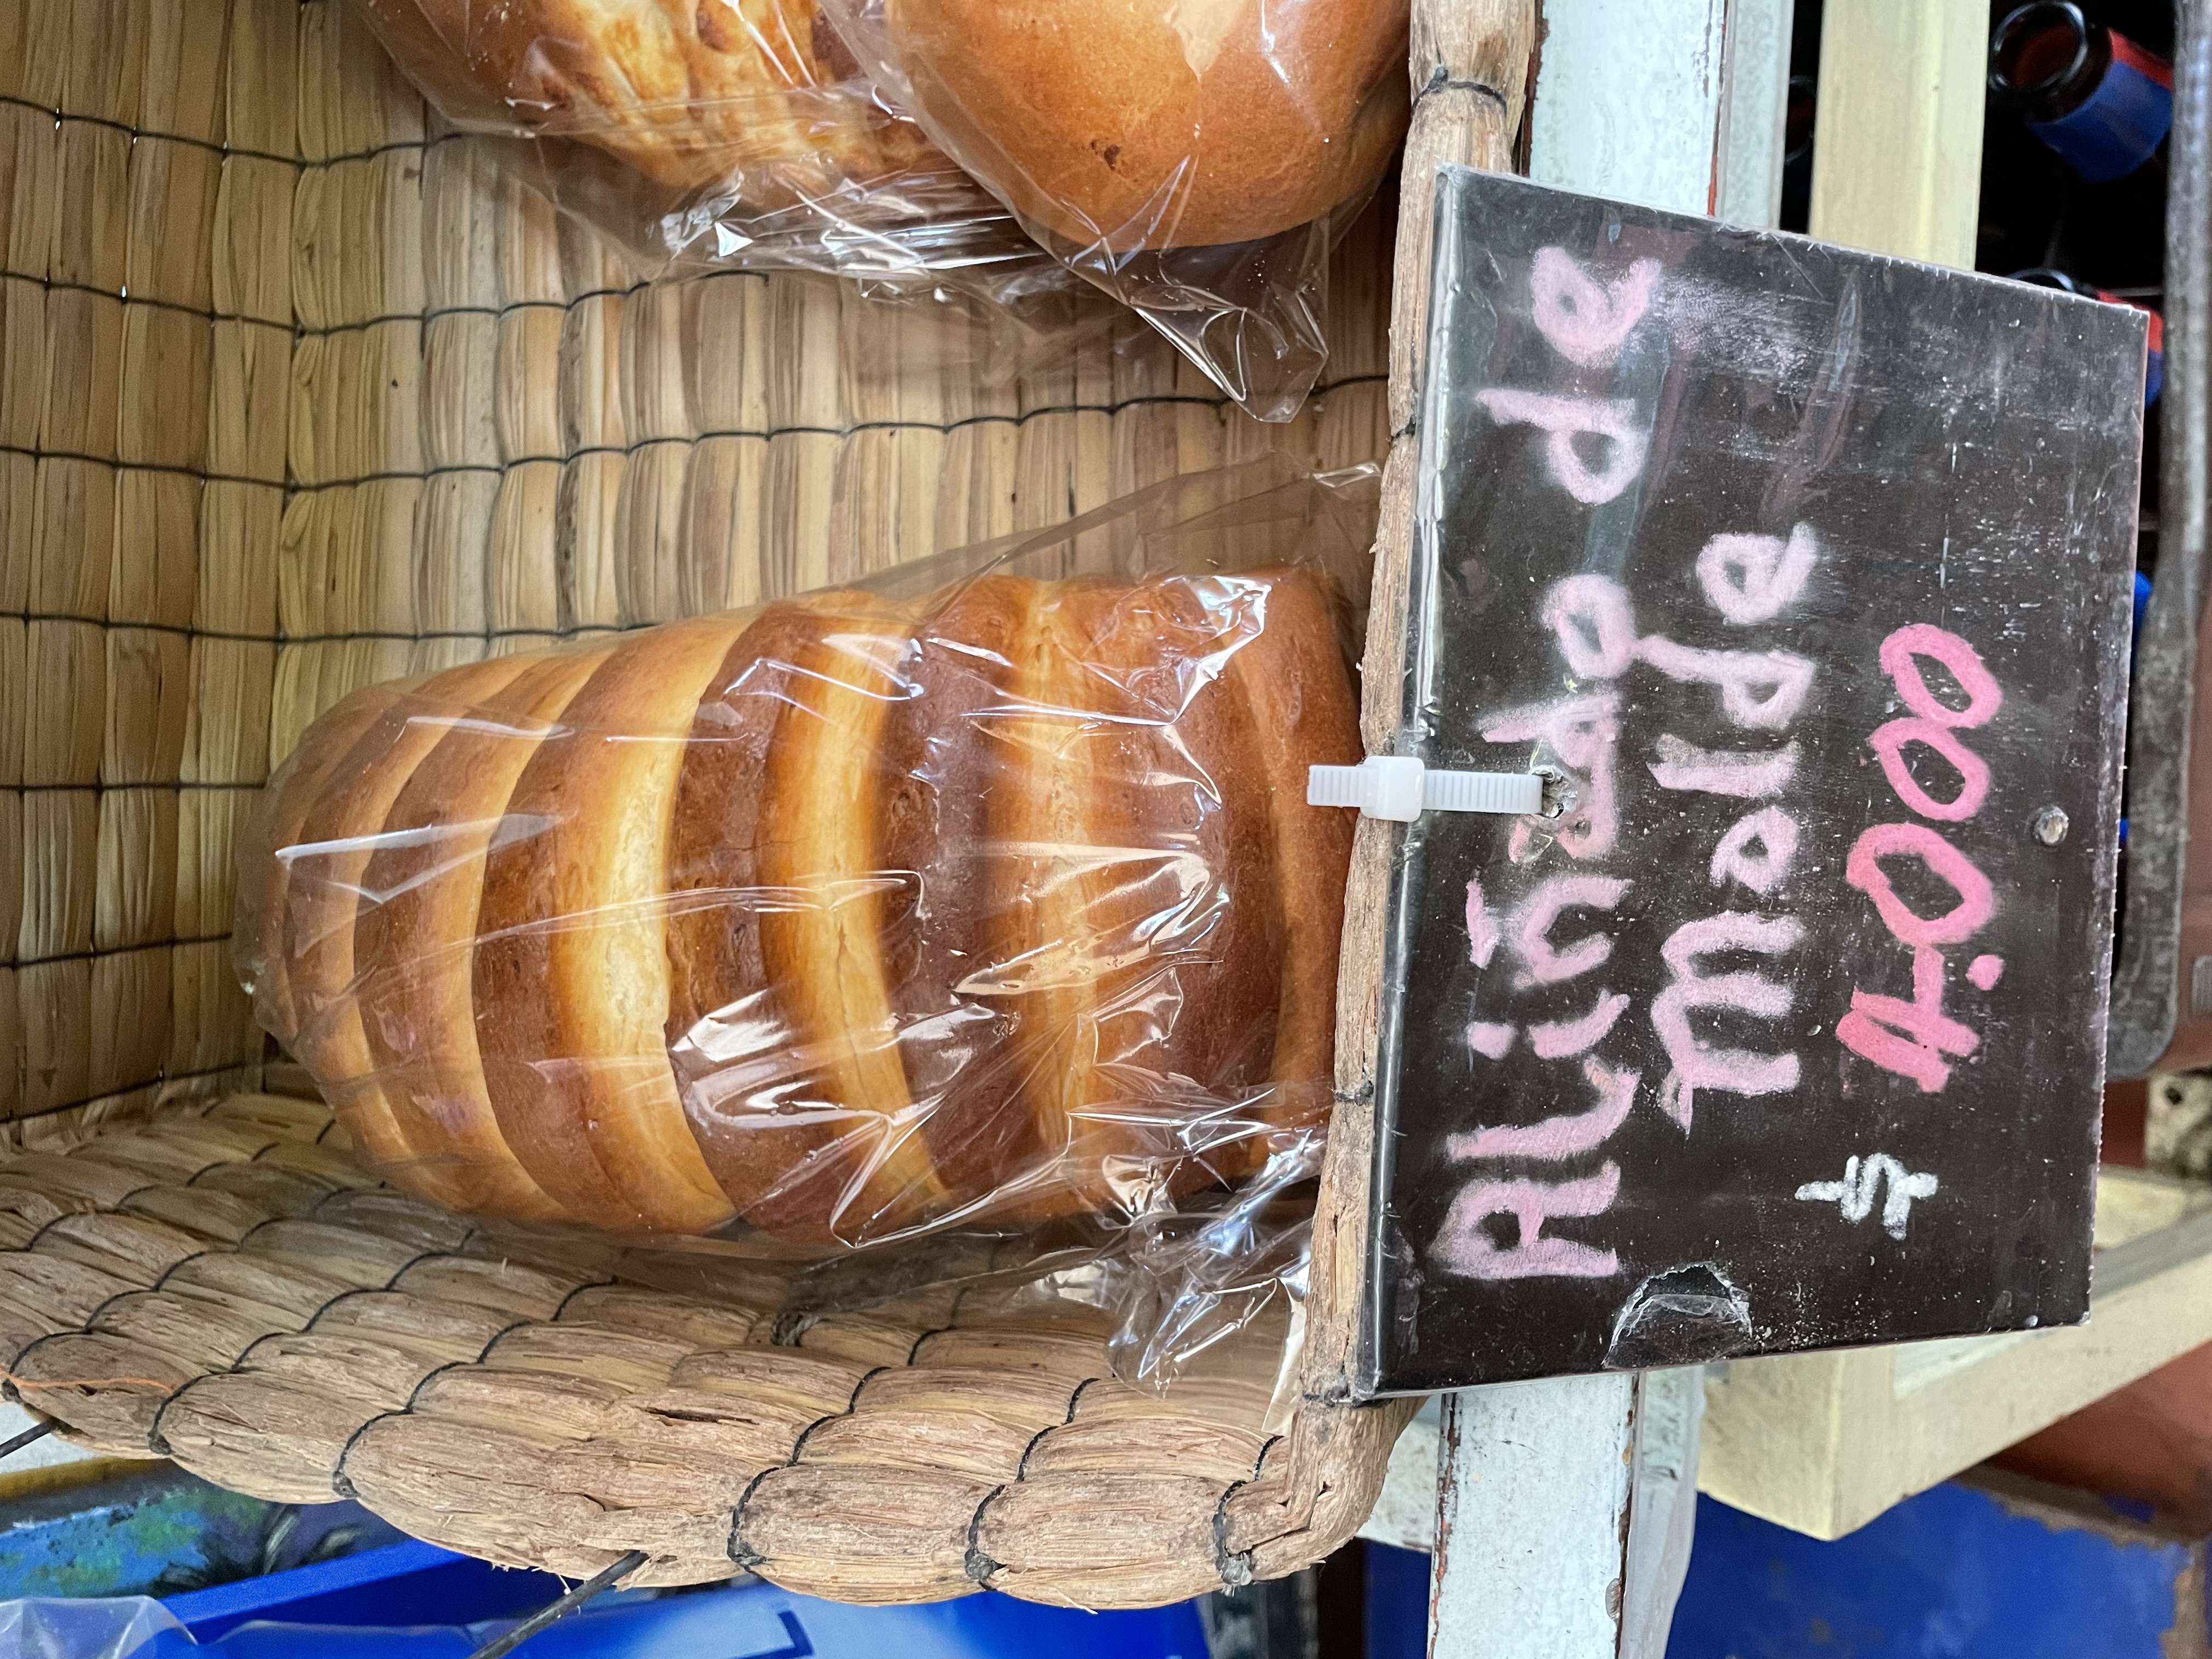 Aliñado de
Molde
$ 4.000
L